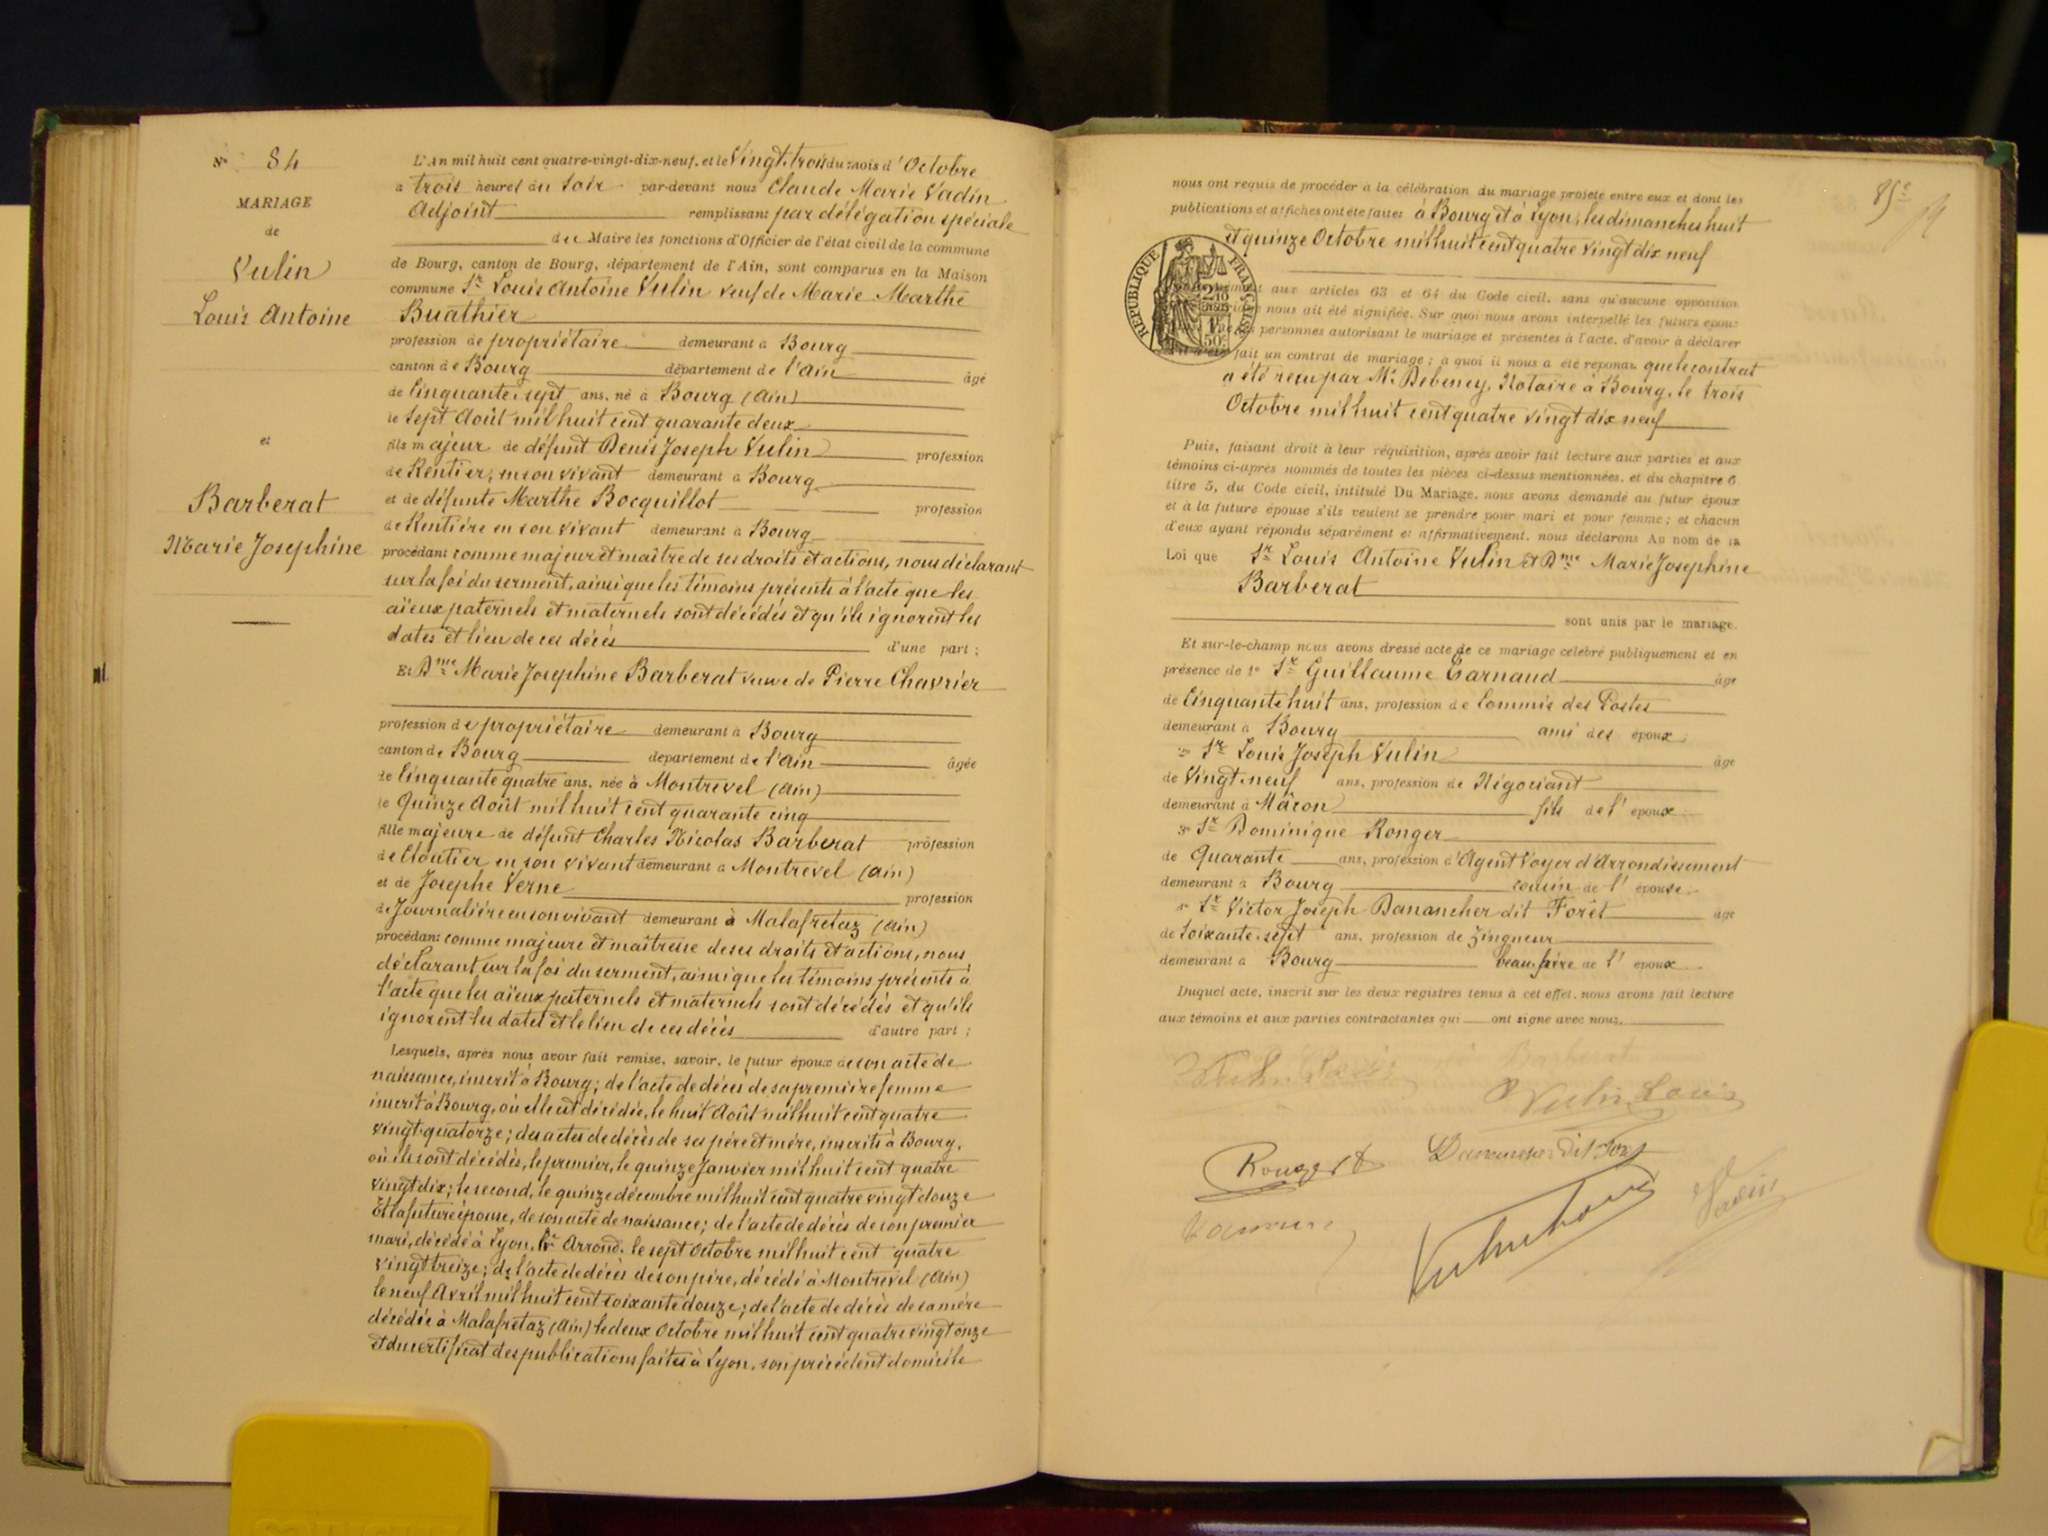 N° 84
MARIAGE
de
Vulin
Louis Antoine
et
Barberat
Marie Josephine
L'An mil huit cent quatre-vingt-dix-neuf, et le Vingt-trois du mois d'Octobre
à trois heures du soir par-devant nous Claude Marie Vadin
Adjoint remplissant par délégation spéciale
du Maire les fonctions d'Officier de l'état civil de la commune
de Bourg, canton de Bourg, département de l'Ain, sont comparus en la Maison
commune Sr Louis Antoine Vulin veuf de Marie Marthe
Buathier
profession de propriétaire demeurant à Bourg
canton de Bourg département de l'Ain âgé
de Cinquante-sept ans, né à Bourg (Ain)
le sept Août mil huit cent quarante deux
fils majeur de défunt Denis Joseph Vulin profession
de Rentier, en son vivant demeurant à Bourg
et de défunte Marthe Bocquillot profession
de Rentière en son vivant demeurant à Bourg
procédant comme majeur et maître de ses droits et actions, nous déclarant
sur la foi du serment, ainsi que les témoins présents à l'acte que les
aïeux paternels et maternels sont décédés et qu'ils ignorent les
dates et lieu de ces décès d'une part ;
Et Dme Marie Josephine Barberat veuve de Pierre Chavrier
profession de propriétaire demeurant à Bourg
canton de Bourg département de l'Ain âgée
de Cinquante quatre ans, née à Montrevel (Ain)
le Quinze Août mil huit cent quarante cinq
fille majeure de défunt Charles Nicolas Barberat profession
de Cloutier en son vivant demeurant à Montrevel (Ain)
et de Josephe Verne profession
de Journalière en son vivant demeurant à Malafretaz (Ain)
procédant comme majeure et maîtresse de ses droits et actions, nous
déclarant sur la foi du serment, ainsi que les témoins présents à
l'acte que les aïeux paternels et maternels sont décédés et qu'ils
ignorent les dates et le lieu de ces décès d'autre part ;
Lesquels, après nous avoir fait remise, savoir, le futur époux de son acte de
naissance, inscrit à Bourg ; de l'acte de décès de sa première femme
inscrit à Bourg, où elle est décédée, le huit Août mil huit cent quatre
vingt-quatorze ; des actes de décès de ses père et mère, inscrits à Bourg,
où ils sont décédés, le premier, le quinze Janvier mil huit cent quatre
vingt dix ; le second, le quinze décembre mil huit cent quatre vingt douze
Et la future épouse, de son acte de naissance ; de l'acte de décès de son premier
mari, décédé à Lyon, Arrond. le sept Octobre mil huit cent quatre
vingt treize ; de l'acte de décès de son père, décédé à Montrevel (Ain)
le neuf Avril mil huit cent soixante douze ; de l'acte de décès de sa mère
décédée à Malafretaz (Ain) le deux Octobre mil huit cent quatre vingt onze
et du certificat des publications faites à Lyon, son précédent domicile
85e
nous ont requis de procéder à la célébration du mariage projeté entre eux et dont les
publications et affiches ont été faites à Bourg et à Lyon, les dimanches huit
et quinze Octobre mil huit cent quatre vingt dix neuf
REPUBLIQUE FRANÇAISE
2/10
50c
aux articles 63 et 64 du Code civil, sans qu'aucune opposition
nous ait été signifiée. Sur quoi nous avons interpellé les futurs époux
personnes autorisant le mariage et présentes à l'acte, d'avoir à déclarer
fait un contrat de mariage ; à quoi il nous a été répondu que le contrat
a été reçu par Me Debeney, Notaire à Bourg, le trois
Octobre mil huit cent quatre vingt dix neuf
Puis, faisant droit à leur réquisition, après avoir fait lecture aux parties et aux
témoins ci-après nommés de toutes les pièces ci-dessus mentionnées, et du chapitre 6
titre 5, du Code civil, intitulé Du Mariage, nous avons demandé au futur époux
et à la future épouse s'ils veulent se prendre pour mari et pour femme ; et chacun
d'eux ayant répondu séparément et affirmativement, nous déclarons Au nom de la
Loi que Sr Louis Antoine Vulin et Dme Marie Josephine
Barberat
sont unis par le mariage.
Et sur-le-champ nous avons dressé acte de ce mariage célébré publiquement et en
présence de 1° Sr Guillaume Carnaud âgé
de Cinquante huit ans, profession de Commis des Postes
demeurant à Bourg ami des époux
2° Sr Louis Joseph Vulin âgé
de Vingt-neuf ans, profession de Négociant
demeurant à Mâcon fils de l'époux
3° Sr Dominique Ronger
de Quarante ans, profession d'Agent Voyer d'Arrondissement
demeurant à Bourg cousin de l'épouse
4° Sr Victor Joseph Danancher dit Forêt âgé
de soixante-sept ans, profession de Zingueur
demeurant à Bourg beau-frère de l'époux
Duquel acte, inscrit sur les deux registres tenus à cet effet, nous avons fait lecture
aux témoins et aux parties contractantes qui ont signé avec nous.
Vulin Louis
Ronger
Danancher dit Forêt
Vadin